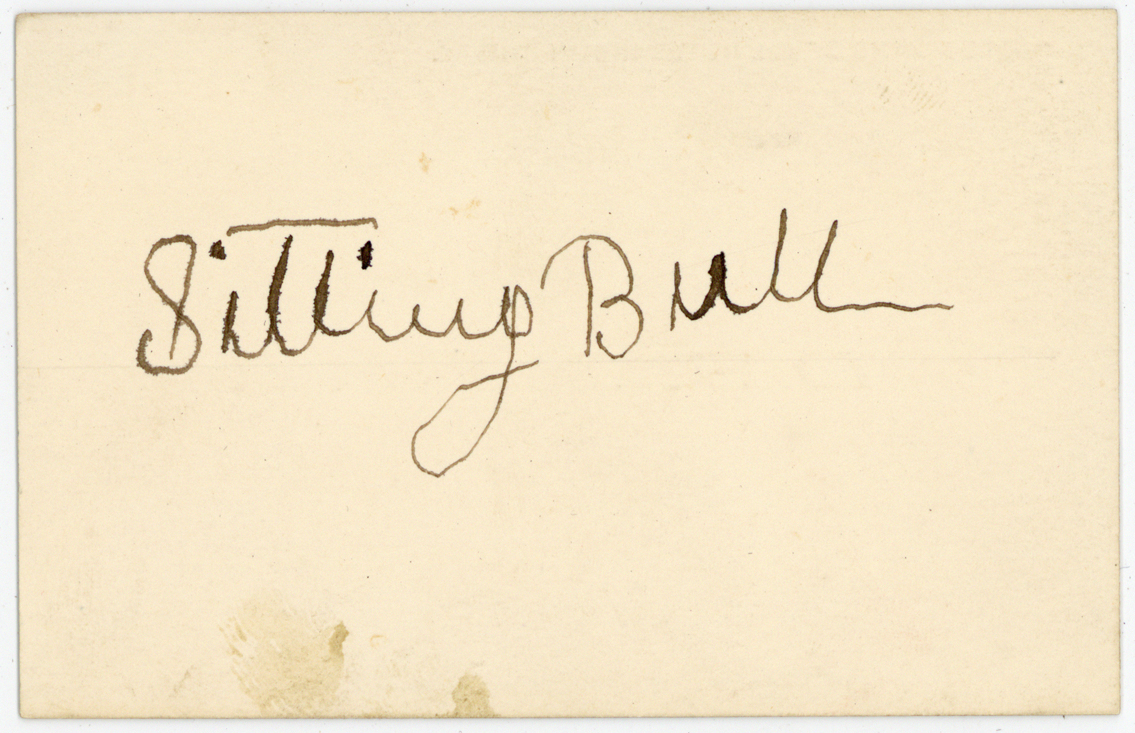 Sitting Bull